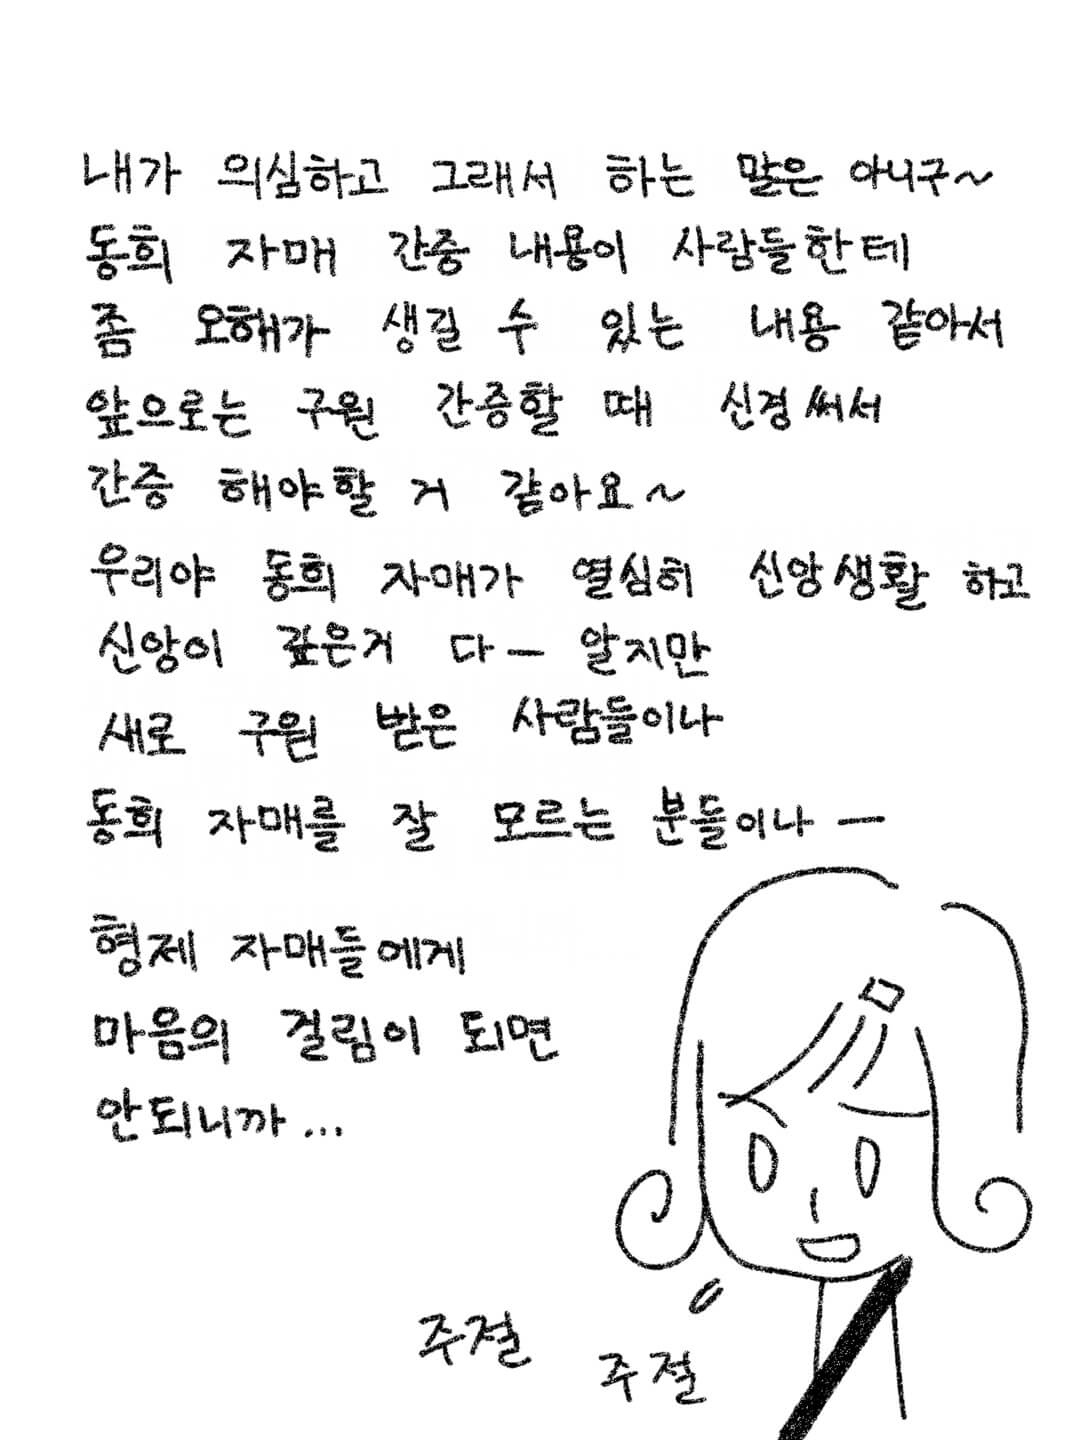 내가 의심하고 그래서 하는 말은 아니구~
동희 자매 간증 내용이 사람들한테
좀 오해가 생길 수 있는 내용 같아서
앞으로는 구원 간증할 때 신경써서
간증 해야할 거 같아요~
우리야 동희 자매가 열심히 신앙생활 하고
신앙이 깊은거 다- 알지만
새로 구원 받은 사람들이나
동희 자매를 잘 모르는 분들이나-
형제 자매들에게
마음의 걸림이 되면
안되니까...
주절
주절